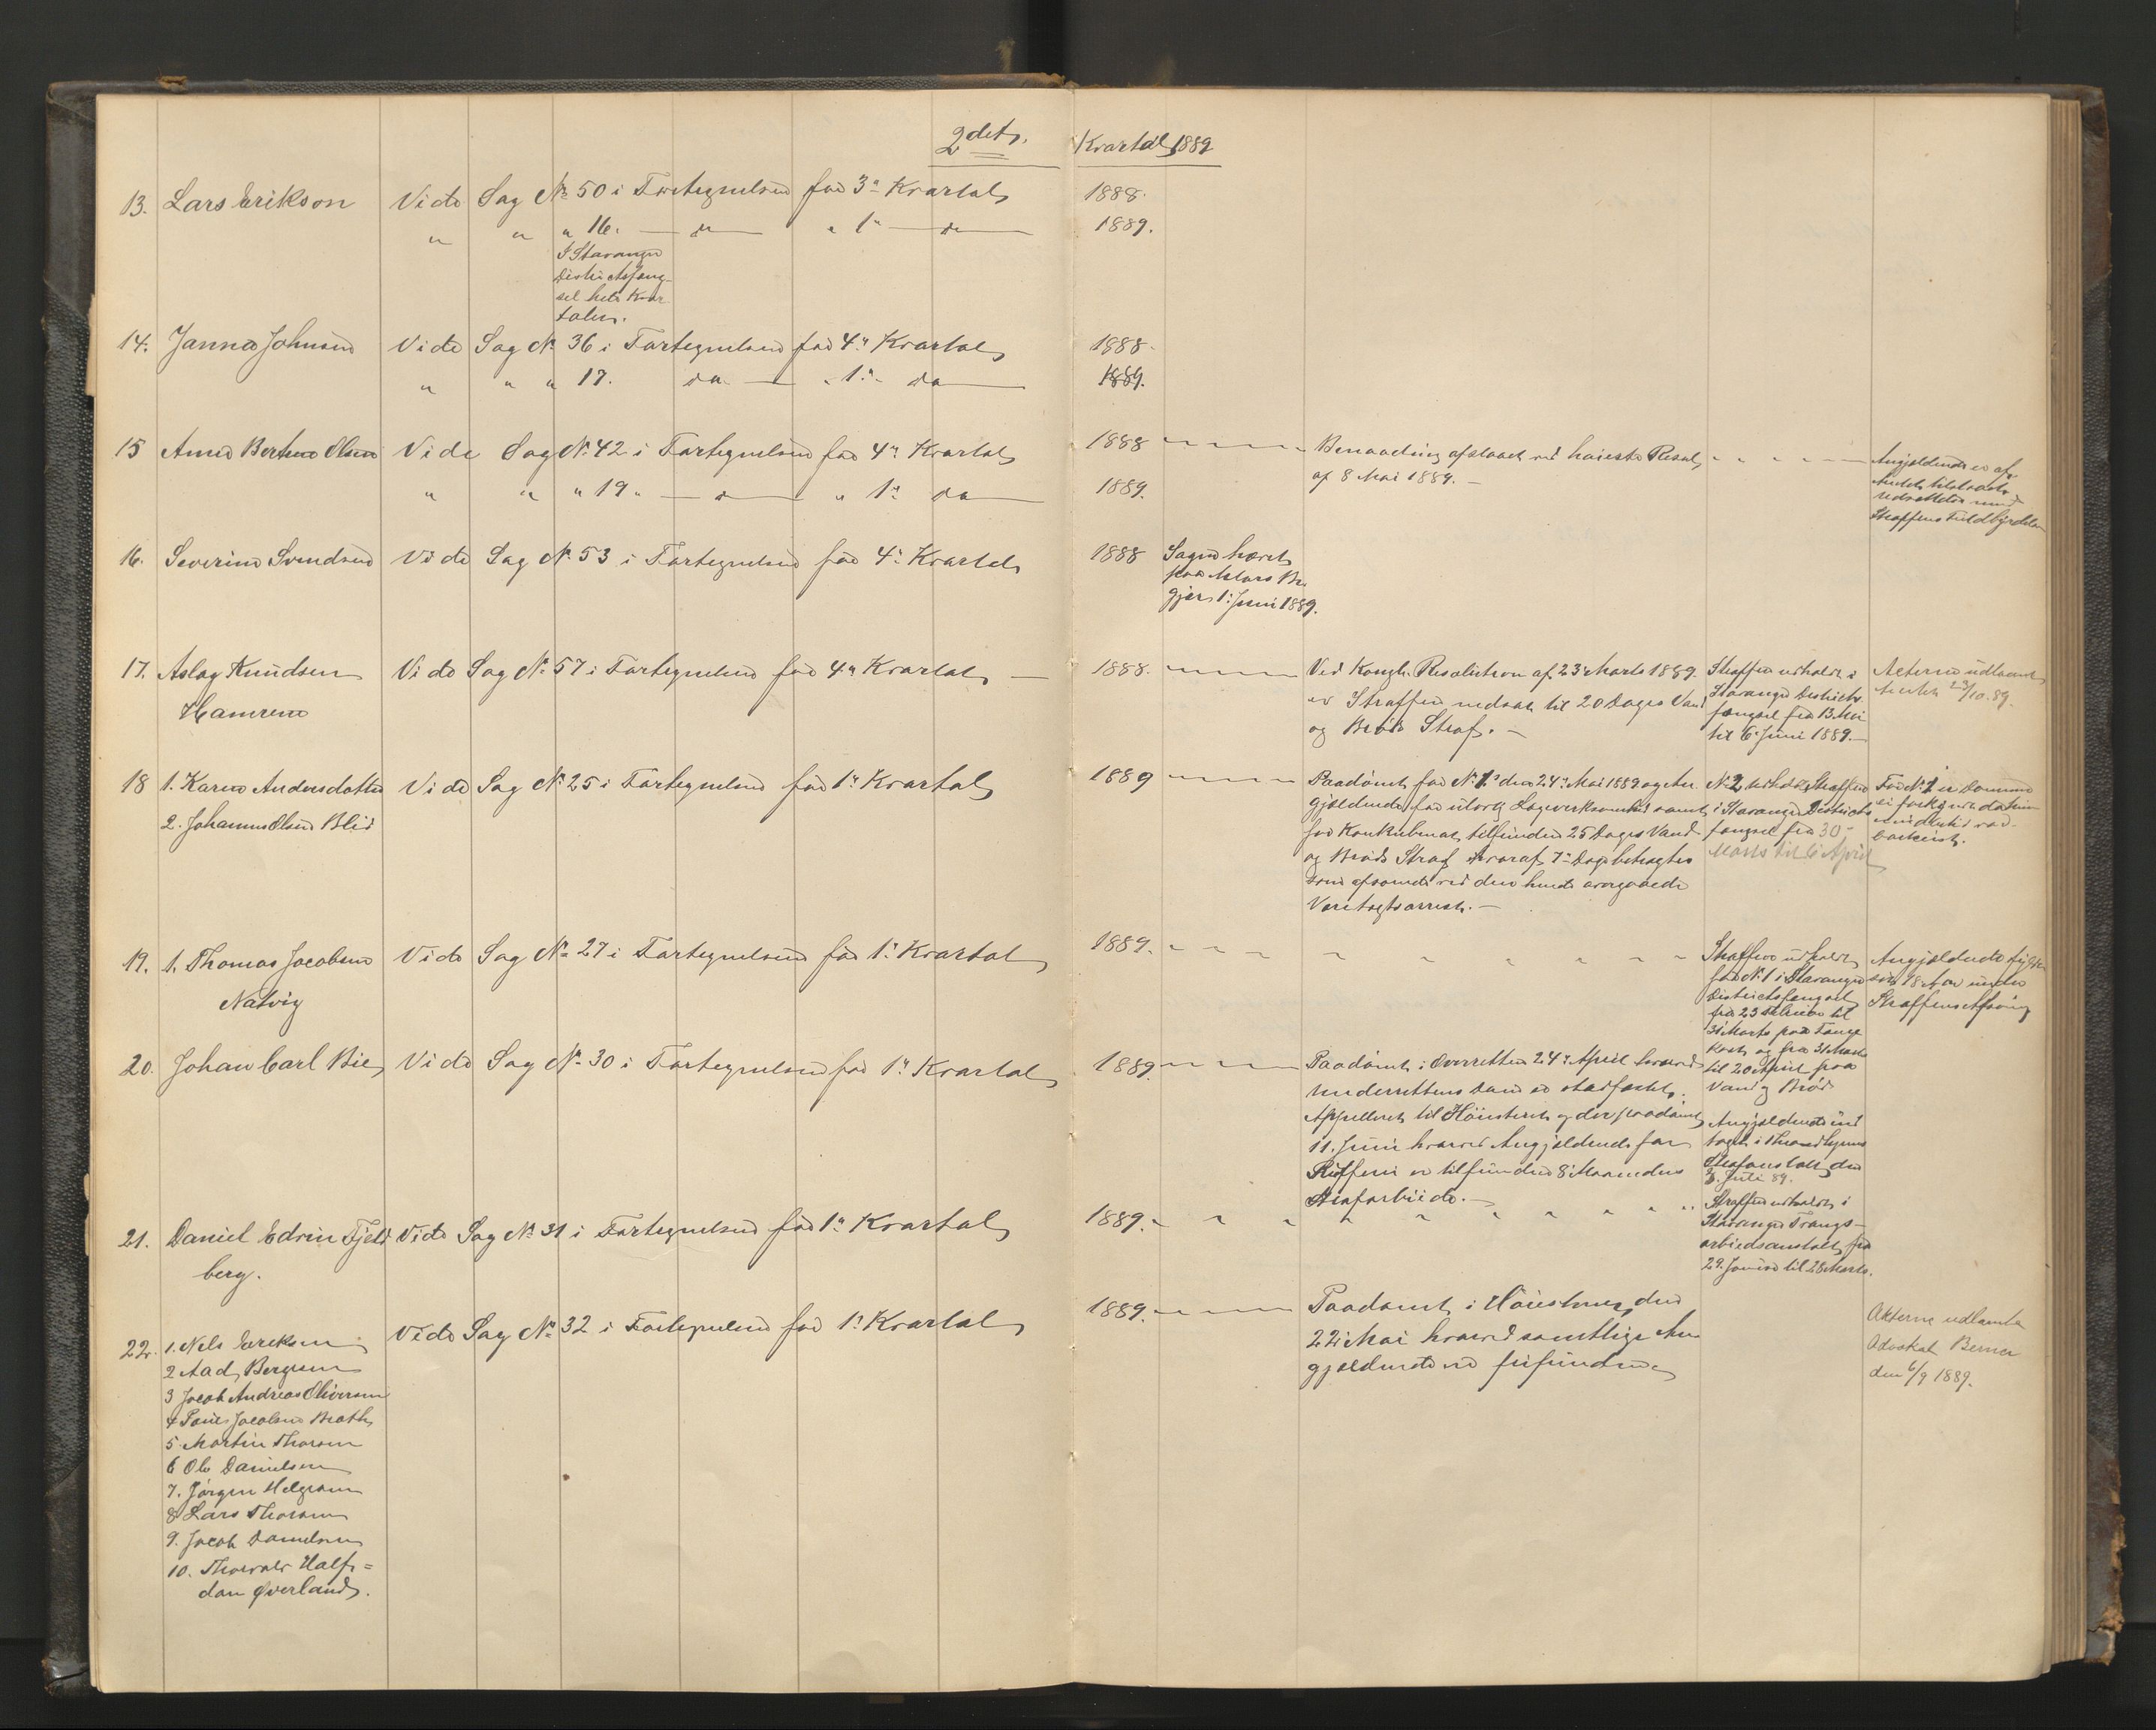 2det Kvartal 1889
13. Lars Erikson Vide Sag № 50 i Fortegnelsen for 3die Kvartal 1888.
" " " 16. — do — " 1ste do 1889.
I Stavanger
Districtsfæng-
sel hele Kvar
talet.
14. Janna Johnsen Vide Sag № 36 i Fortegnelsen for 4de Kvartal 1888.
" " " 17. do — " 1ste do 1889.
15 Anne Bertine Olsen Vide Sag № 42 i Fortegnelsen for 4de Kvartal 1888 Benaadning afslaaet ved høieste Resol.
af 8 Mai 1889. —
" " " 19 " — do — " 1ste do 1889.
Angjældende er af
Amtet tilstaaet
Udsættelse med
Straffens Fuldbyrdelse
16. Severine Svendsen Vide Sag № 53 i Fortegnelsen for 4de Kvartal 1888
Sagen hævet
paa Actors Be
gjær. 1ste Juni 1889.
17. Aslag Knudsen Vide Sag № 57 i Fortegnelsen for 4de Kvartal — 1888.
Hamren
Ved Kongl. Resolution af 23de Marts 1889.
er Straffen nedsat til 20 Dages Vand
og Brøds Straf. —
Straffen udholdt i
Stavanger Districts
fængsel fra 13 Mai
til 6te Juni 1889. —
Acterne udlaant
Amtet 23/10.89.
18 1. Karen Andersdatter Vide Sag № 25 i Fortegnelsen for 1ste Kvartal 1889
2. Johannes Olsen Blie
Paadømt for № 1 den 24de Mai 1889 og An
gjældende for
for Konkubinat tilfunden 25 Dages Vand
og Brøds Straf hvoraf 7 Dage betragtes
som afsonede ved den hende overgaaede
Varetægtsarrest. —
№ 2 udholdt Straffen
i Stavanger Districts
fængsel fra 30
Marts til 6 April
For № 1 er Dommen
ei forkyndt da hun
imidlertid var
bortreist.
19. 1. Thomas Jacobsen Vide Sag № 27 i Fortegnelsen for 1ste Kvartal 1889.
Natvig
Straffen udholdt
for № 1 i Stavanger
Districtsfængsel
fra 23 Februar til
31 Marts paa Fange
kost og fra 31 Marts
til 20 April paa
Vand og Brød
Angjældende fyldte
sit 18 Aar under
Straffens Afsoning
20. Johan Carl Bie Vide Sag № 30 i Fortegnelsen for 1ste Kvartal 1889.
Paadømt i Overretten 24de April hvorved
Underrettens Dom er stadfæstet.
Appelleret til Høiesteret og der paadømt
11. Juni hvorved Angjældende for
er tilfunden 8 Maaneders
Strafarbeide. —
Angjældende ind
taget i Throndhjems
Strafanstalt den
3. Juli 89.
21. Daniel Edvin Fjeld Vide Sag № 31 i Fortegnelsen for 1ste Kvartal 1889.
berg.
Straffen udholdt i
Stavanger Tvangs-
arbeidsanstalt fra
29. Januar til 28 Marts.
22. 1. Nels Erikson Vide Sag № 32 i Fortegnelsen for 1ste Kvartal 1889.
Paadømt i Høiesteret den
22de Mai hvorved samtlige An
gjældende er frifundne
Akterne udlaante
Advokat Berner
den 6/9 1889.
2 Aad. Bergesen
3 Jacob Andreas Oliversen
4 Paul Jacobsen Brath
5 Martin Thorsen
6 Ole Danielsen
7. Jørgen Helgesen
8 Lars Thorsen
9. Jacob Danielsen
10. Thorvald Half-
dan Øverland.